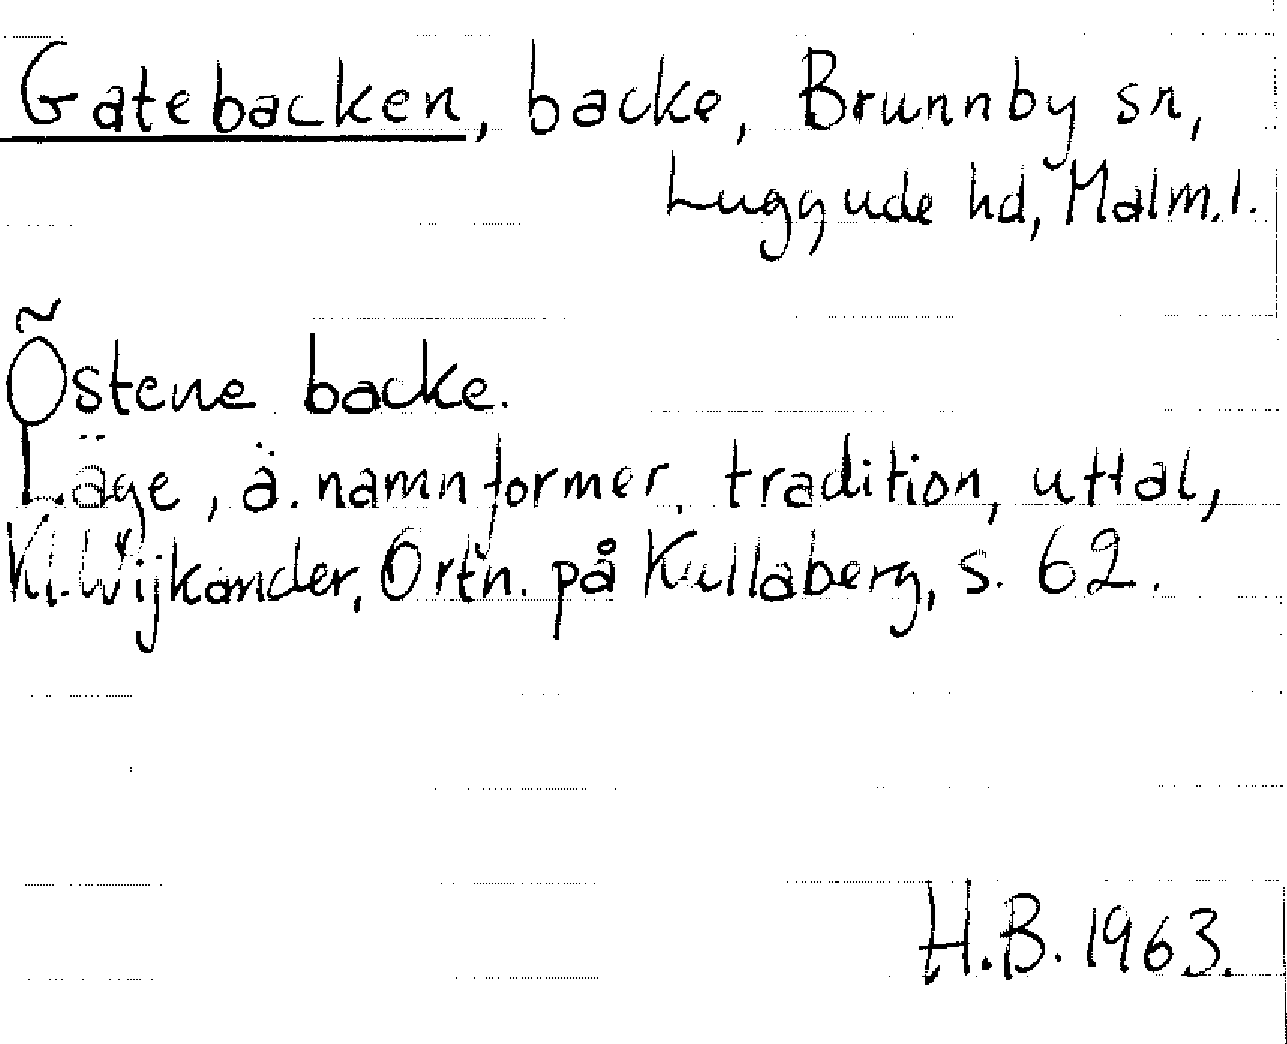 Gatebacken, backe, Brunnby sn,
Luggude hd, Malm.l.
Östene backe.
Läge, ä. namnformer, tradition, uttal,
K.Wijkander, Ortn. på Kullaberg, s. 62.
H.B. 1963.